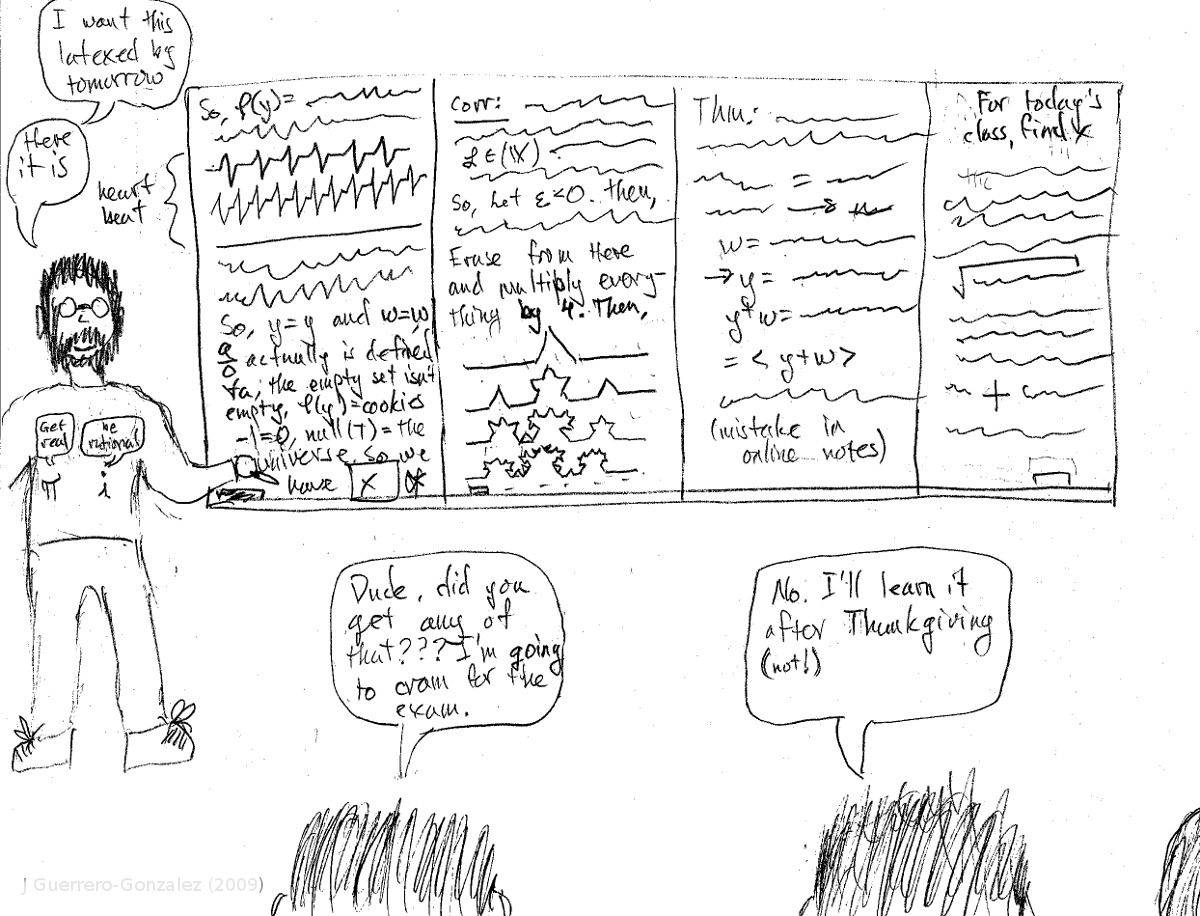 I want this
latexed by
tomorrow
Here
it is
heart
beat
So, P(y)=
So, y=y and w=w,
a/0 actually is defined
the empty set isn't
empty, P(y)=cookies
-1=0, null(T)=the
universe. So we
have X
Corr:
L∈(X)
So, Let ε<0. Then,
Erase from Here
and multiply every-
thing by 4. Then,
Thm:
=
w=
→y=
y+w=
=<y+w>
(mistake in
online notes)
For today's
class, find X
+
Get
real
be
rational
π i
Dude, did you
get any of
that??? I'm going
to cram for the
exam.
No. I'll learn it
after Thankgiving
(not!)
J Guerrero-Gonzalez (2009)